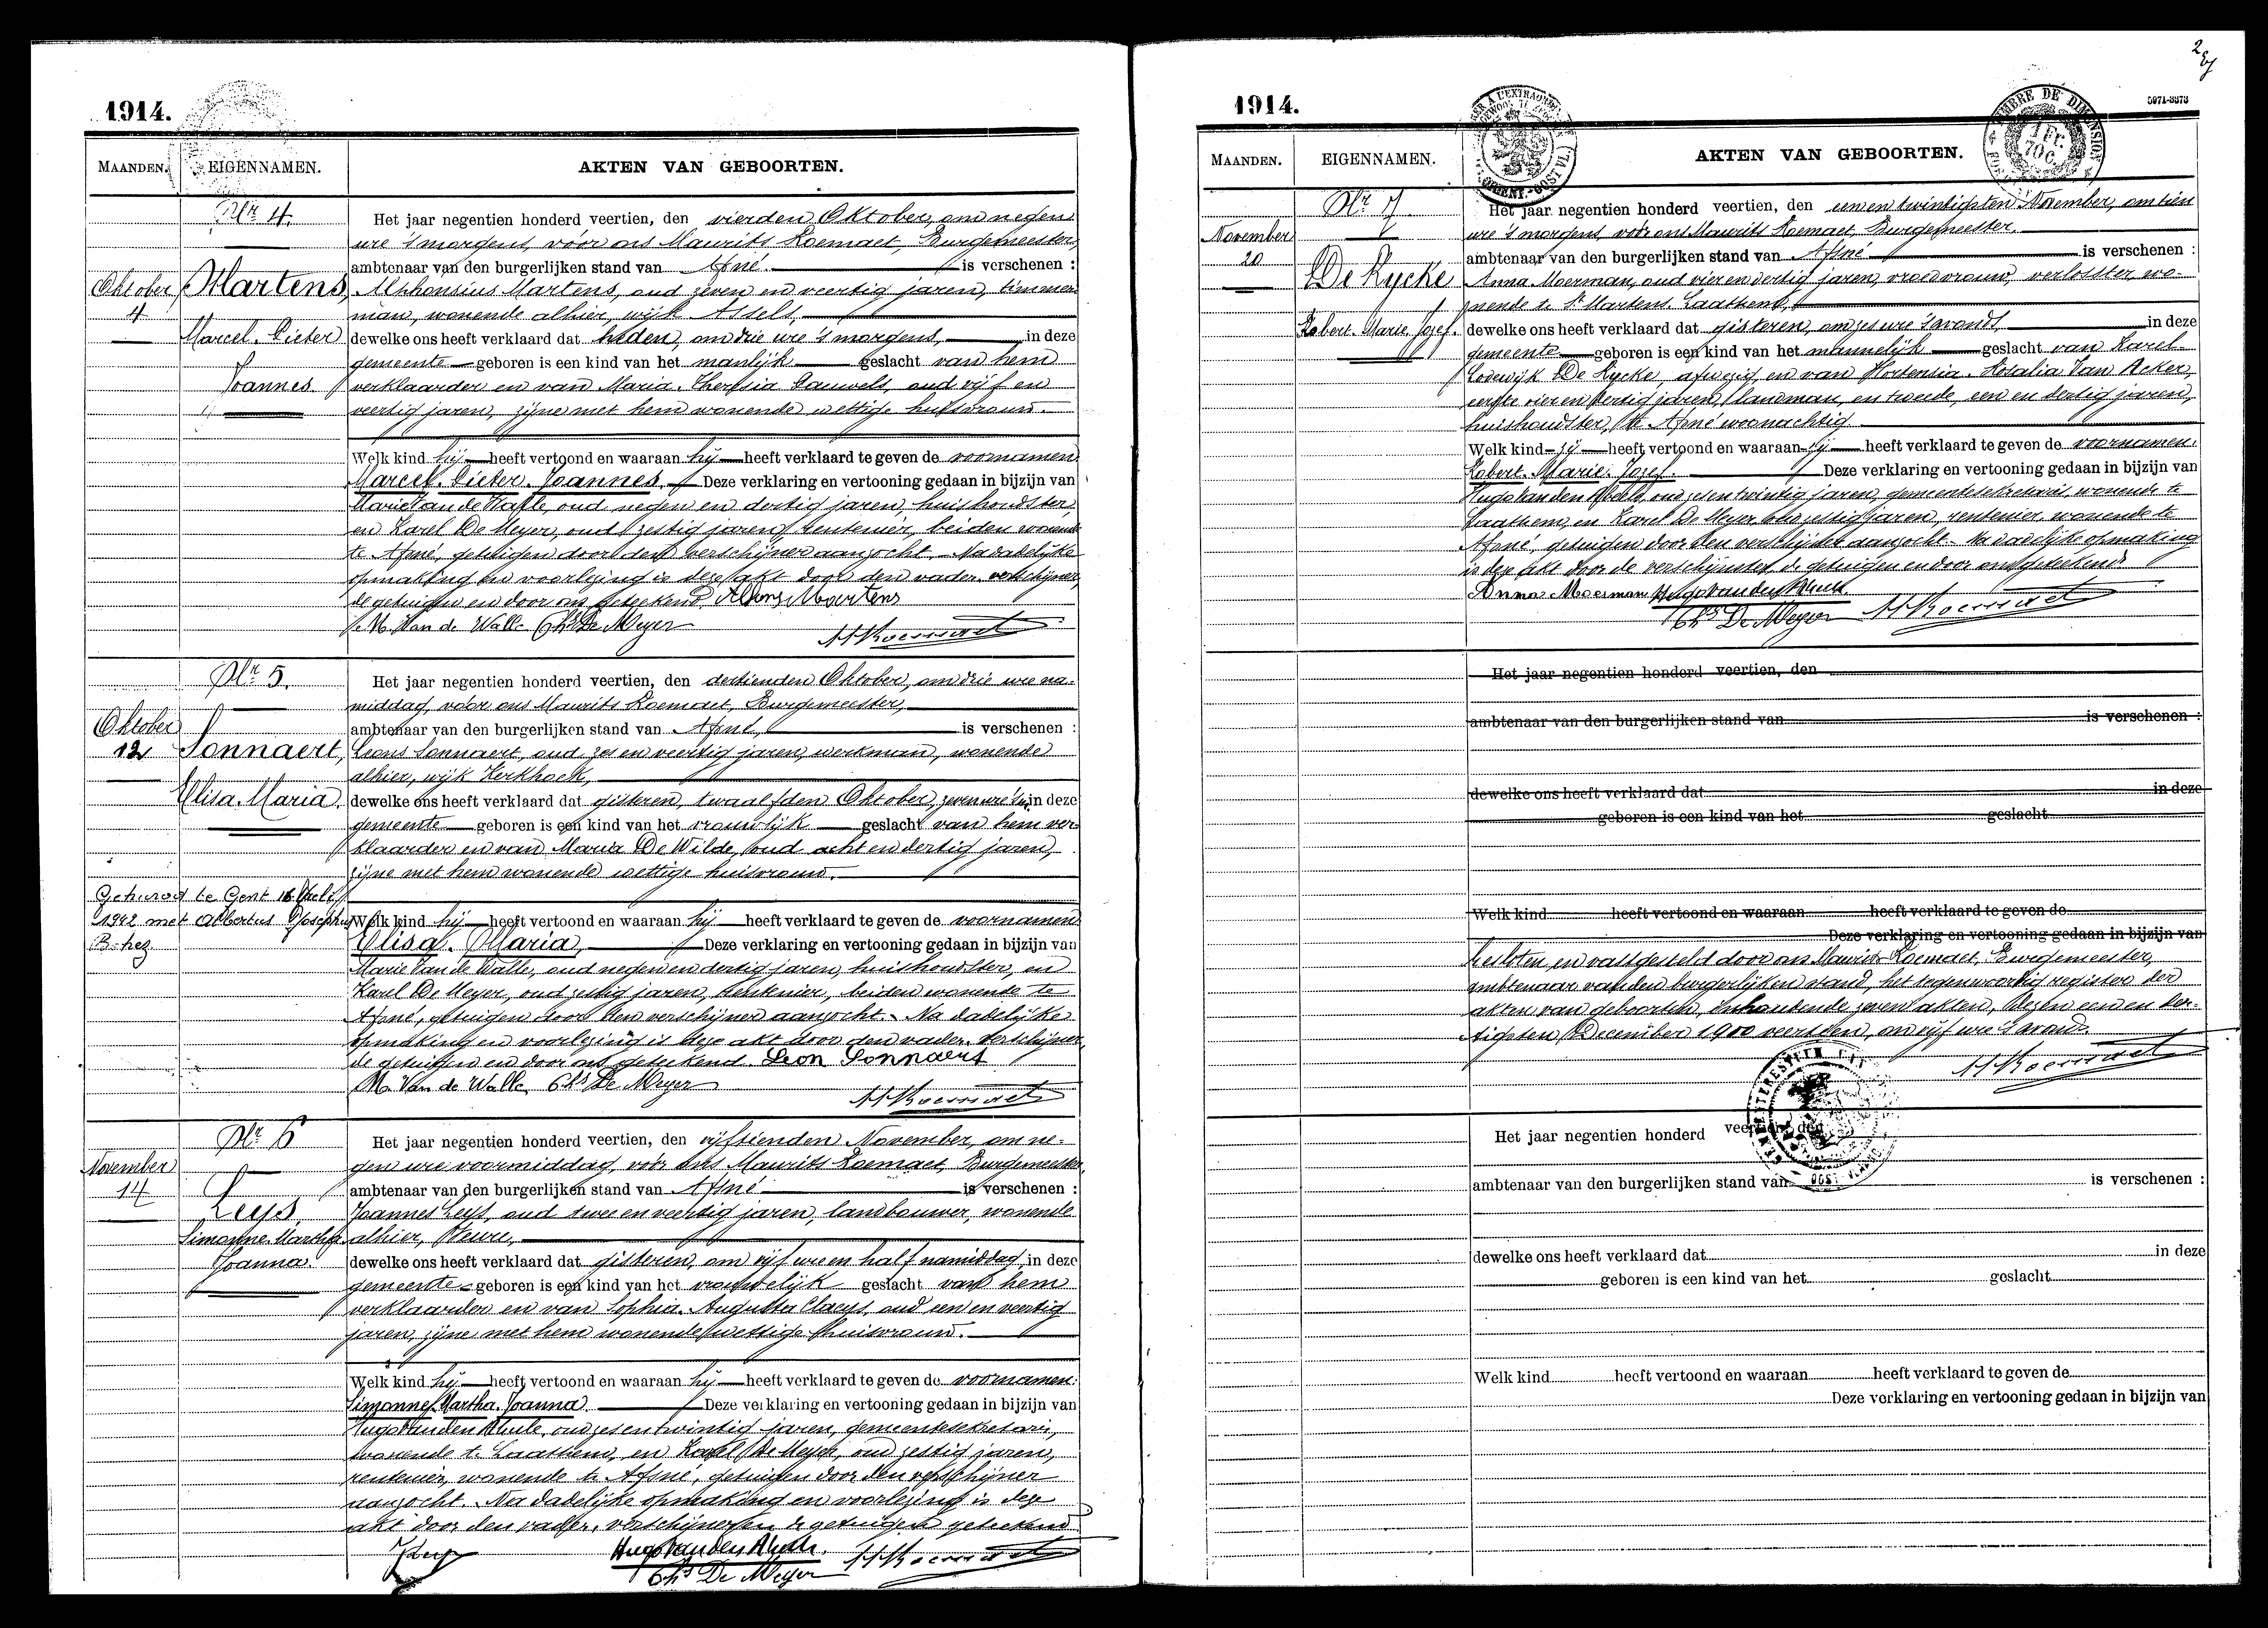 1914.
MAANDEN. EIGENNAMEN. AKTEN VAN GEBOORTEN.
Nr 4.
Oktober
4
Martens,
Marcel. Pieter
Joannes
Het jaar negentien honderd veertien, den vierden Oktober, om negen
ure 's morgens, vóór ons Maurits Roemaet, Burgemeester,
ambtenaar van den burgerlijken stand van Afsné. is verschenen :
Alphonsius Martens, oud zeven en veertig jaren, timmer
man, wonende alhier, wijk Assels,
dewelke ons heeft verklaard dat heden, om drie ure 's morgens, in deze
gemeente geboren is een kind van het manlijk geslacht van hem
verklaarder en van Maria. Theresia Pauwels, oud vijf en
veertig jaren, zijne met hem wonende wettige huisvrouw.
Welk kind hij heeft vertoond en waaraan hij heeft verklaard te geven de voornamen
Marcel. Pieter. Joannes. Deze verklaring en vertooning gedaan in bijzijn van
Marie Van de Walle, oud negen en dertig jaren, huishoudster,
en Karel De Meyer, oud zestig jaren, rentenier, beiden wonende
te Afsné, getuigen door den verschijner aanzocht. Na dadelijke
opmaking en voorlezing is deze akt door den vader. verschijner,
de getuigen en door ons geteekend. Alfons Martens
M. Van de Walle Chs De Meyer
M Roemaet
Nr 5.
Oktober
12
Sonnaert,
Elisa. Maria.
Gehuwd te Gent 16 Juli
1942 met Albertus Josephus
Het jaar negentien honderd veertien, den dertienden Oktober, om drie ure na-
middag, vóór ons Maurits Roemaet, Burgemeester,
ambtenaar van den burgerlijken stand van Afsné, is verschenen :
Leons Sonnaert, oud zes en veertig jaren, werkman, wonende
alhier, wijk Kerkhoek,
dewelke ons heeft verklaard dat gisteren, twaalfden Oktober, zeven ure in deze
gemeente geboren is een kind van het vrouwlijk geslacht van hem ver-
klaarder en van Maria De Wilde, oud acht en dertig jaren,
zijne met hem wonende wettige huisvrouw.
Welk kind hij heeft vertoond en waaraan hij heeft verklaard te geven de voornamen
Elisa. Maria, Deze verklaring en vertooning gedaan in bijzijn van
Marie Van de Walle, oud negen en dertig jaren, huishoudster, en
Karel De Meyer, oud zestig jaren, rentenier, beiden wonende te
Afsné, getuigen door den verschijner aanzocht. Na dadelijke
opmaking en voorlezing is deze akt door den vader. verschijner,
de getuigen en door ons geteekend. Leon Sonnaert
M. Van de Walle Chs De Meyer
M Roemaet
Nr 6
November
14
Leys,
Simonne. Martha
Joanna.
Het jaar negentien honderd veertien, den vijftienden November, om ne-
gen ure voormiddag, vóór ons Maurits Roemaet, Burgemeester,
ambtenaar van den burgerlijken stand van Afsné is verschenen :
Joannes Leys, oud twee en veertig jaren, landbouwer, wonende
alhier,
dewelke ons heeft verklaard dat gisteren, om vijf ure en half namiddag, in deze
gemeente geboren is een kind van het vrouwelijk geslacht van hem
verklaarder en van Sophia. Augusta Claeys, oud een en veertig
jaren, zijne met hem wonende wettige huisvrouw.
Welk kind hij heeft vertoond en waaraan hij heeft verklaard te geven de voornamen:
Simonne. Martha. Joanna. Deze verklaring en vertooning gedaan in bijzijn van
Hugo Van den Abeele, oud zes en twintig jaren, gemeentesekretaris,
wonende te Laathem, en Karel De Meyer, oud zestig jaren,
rentenier, wonende te Afsné, getuigen door den verschijner
aanzocht. Na dadelijke opmaking en voorlezing is deze
akt door den vader. verschijner en de getuigen geteekend
J Leys Hugo Van den Abeele. M Roemaet
Chs De Meyer
1914.
5971-3373
MAANDEN. EIGENNAMEN. AKTEN VAN GEBOORTEN.
1 Fr.
70 C.
Nr 7.
November
20
De Rycke
Robert. Marie. Jozef.
Het jaar negentien honderd veertien, den een en twintigsten November, om tien
ure 's morgens, vóór ons Maurits Roemaet, Burgemeester,
ambtenaar van den burgerlijken stand van Afsné is verschenen :
Anna Moerman, oud vier en dertig jaren, vroedvrouw, verlosster, wo-
nende te St Martens. Laathem,
dewelke ons heeft verklaard dat gisteren, om zes ure 's avonds, in deze
gemeente geboren is een kind van het mannelijk geslacht van Karel.
Lodewijk De Rycke, afwezig, en van Hortensia. Rosalia Van Acker,
eerste vier en dertig jaren, landman, en tweede, een en dertig jaren,
huishoudster, te Afsné woonachtig.
Welk kind zij heeft vertoond en waaraan zij heeft verklaard te geven de voornamen:
Robert. Marie. Jozef. Deze verklaring en vertooning gedaan in bijzijn van
Hugo Van den Abeele, oud zes en twintig jaren, gemeentesekretaris, wonende te
Laathem, en Karel De Meyer, oud zestig jaren, rentenier, wonende te
Afsné, getuigen door den verschijnster aanzocht. Na dadelijke opmaking
is deze akt door de verschijnster, de getuigen en door ons geteekend.
Anna Moerman Hugo Van den Abeele.
Chs De Meyer M Roemaet
Het jaar negentien honderd veertien, den
ambtenaar van den burgerlijken stand van is verschenen :
dewelke ons heeft verklaard dat in deze
geboren is een kind van het geslacht
Welk kind heeft vertoond en waaraan heeft verklaard te geven de
Deze verklaring en vertooning gedaan in bijzijn van
Gesloten en vastgesteld door ons Maurits Roemaet, Burgemeester,
ambtenaar van den burgerlijken stand, het tegenwoordig register der
akten van geboorten, inhoudende zeven akten, dezen een en der-
tigsten December 1900 veertien, om vijf ure 's avonds.
M Roemaet
Het jaar negentien honderd veertien, den
ambtenaar van den burgerlijken stand van is verschenen :
dewelke ons heeft verklaard dat in deze
geboren is een kind van het geslacht
Welk kind heeft vertoond en waaraan heeft verklaard te geven de
Deze verklaring en vertooning gedaan in bijzijn van